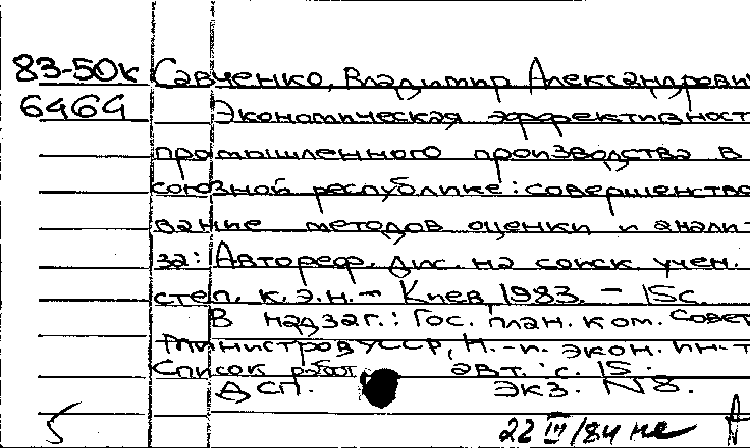 83-50к Савченко, Владимир Александрови
6469 Экономическая эффективност
промышленного производства в
союзной республике: совершенство
вание методов оценки и анали-
за: Автореф. дис. на соиск. учен.
степ. к.э.н. – Киев, 1983. – 15с.
В надзаг.: Гос. план. ком. Совет
Министров УССР, Н.-и. экон. ин-т
Список работ авт.: с. 15.
ДСП. Экз. N 8.
5 22 III/84 не А